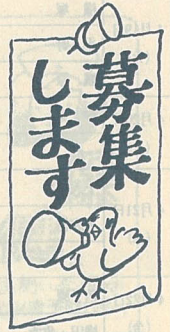 募集
します